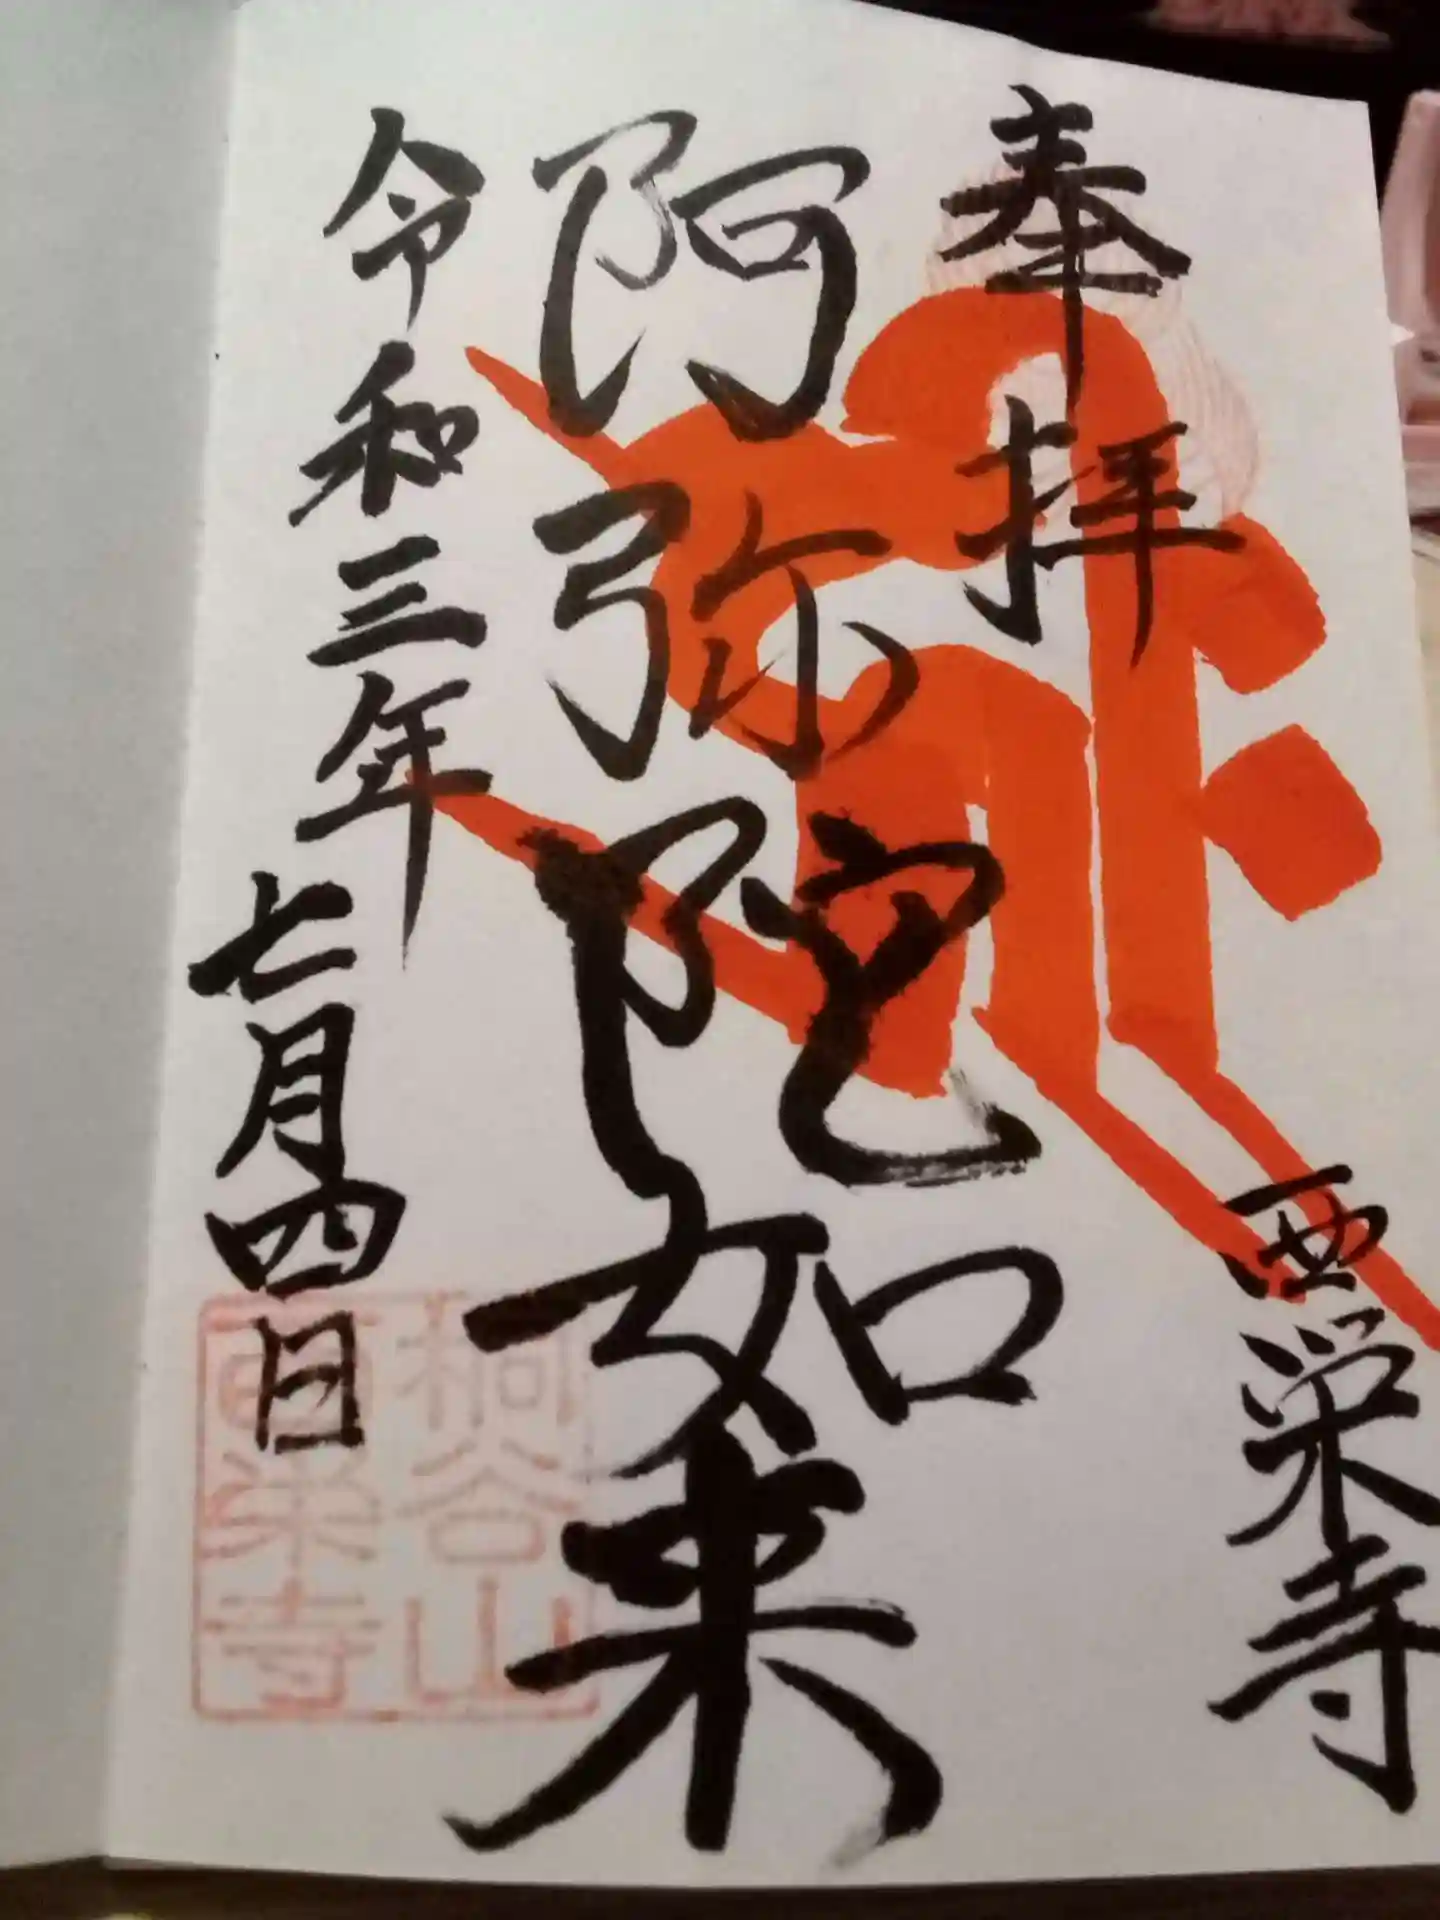 奉拝
西栄寺
阿弥陀如来
令和三年
七月四日
桐谷山
西栄寺